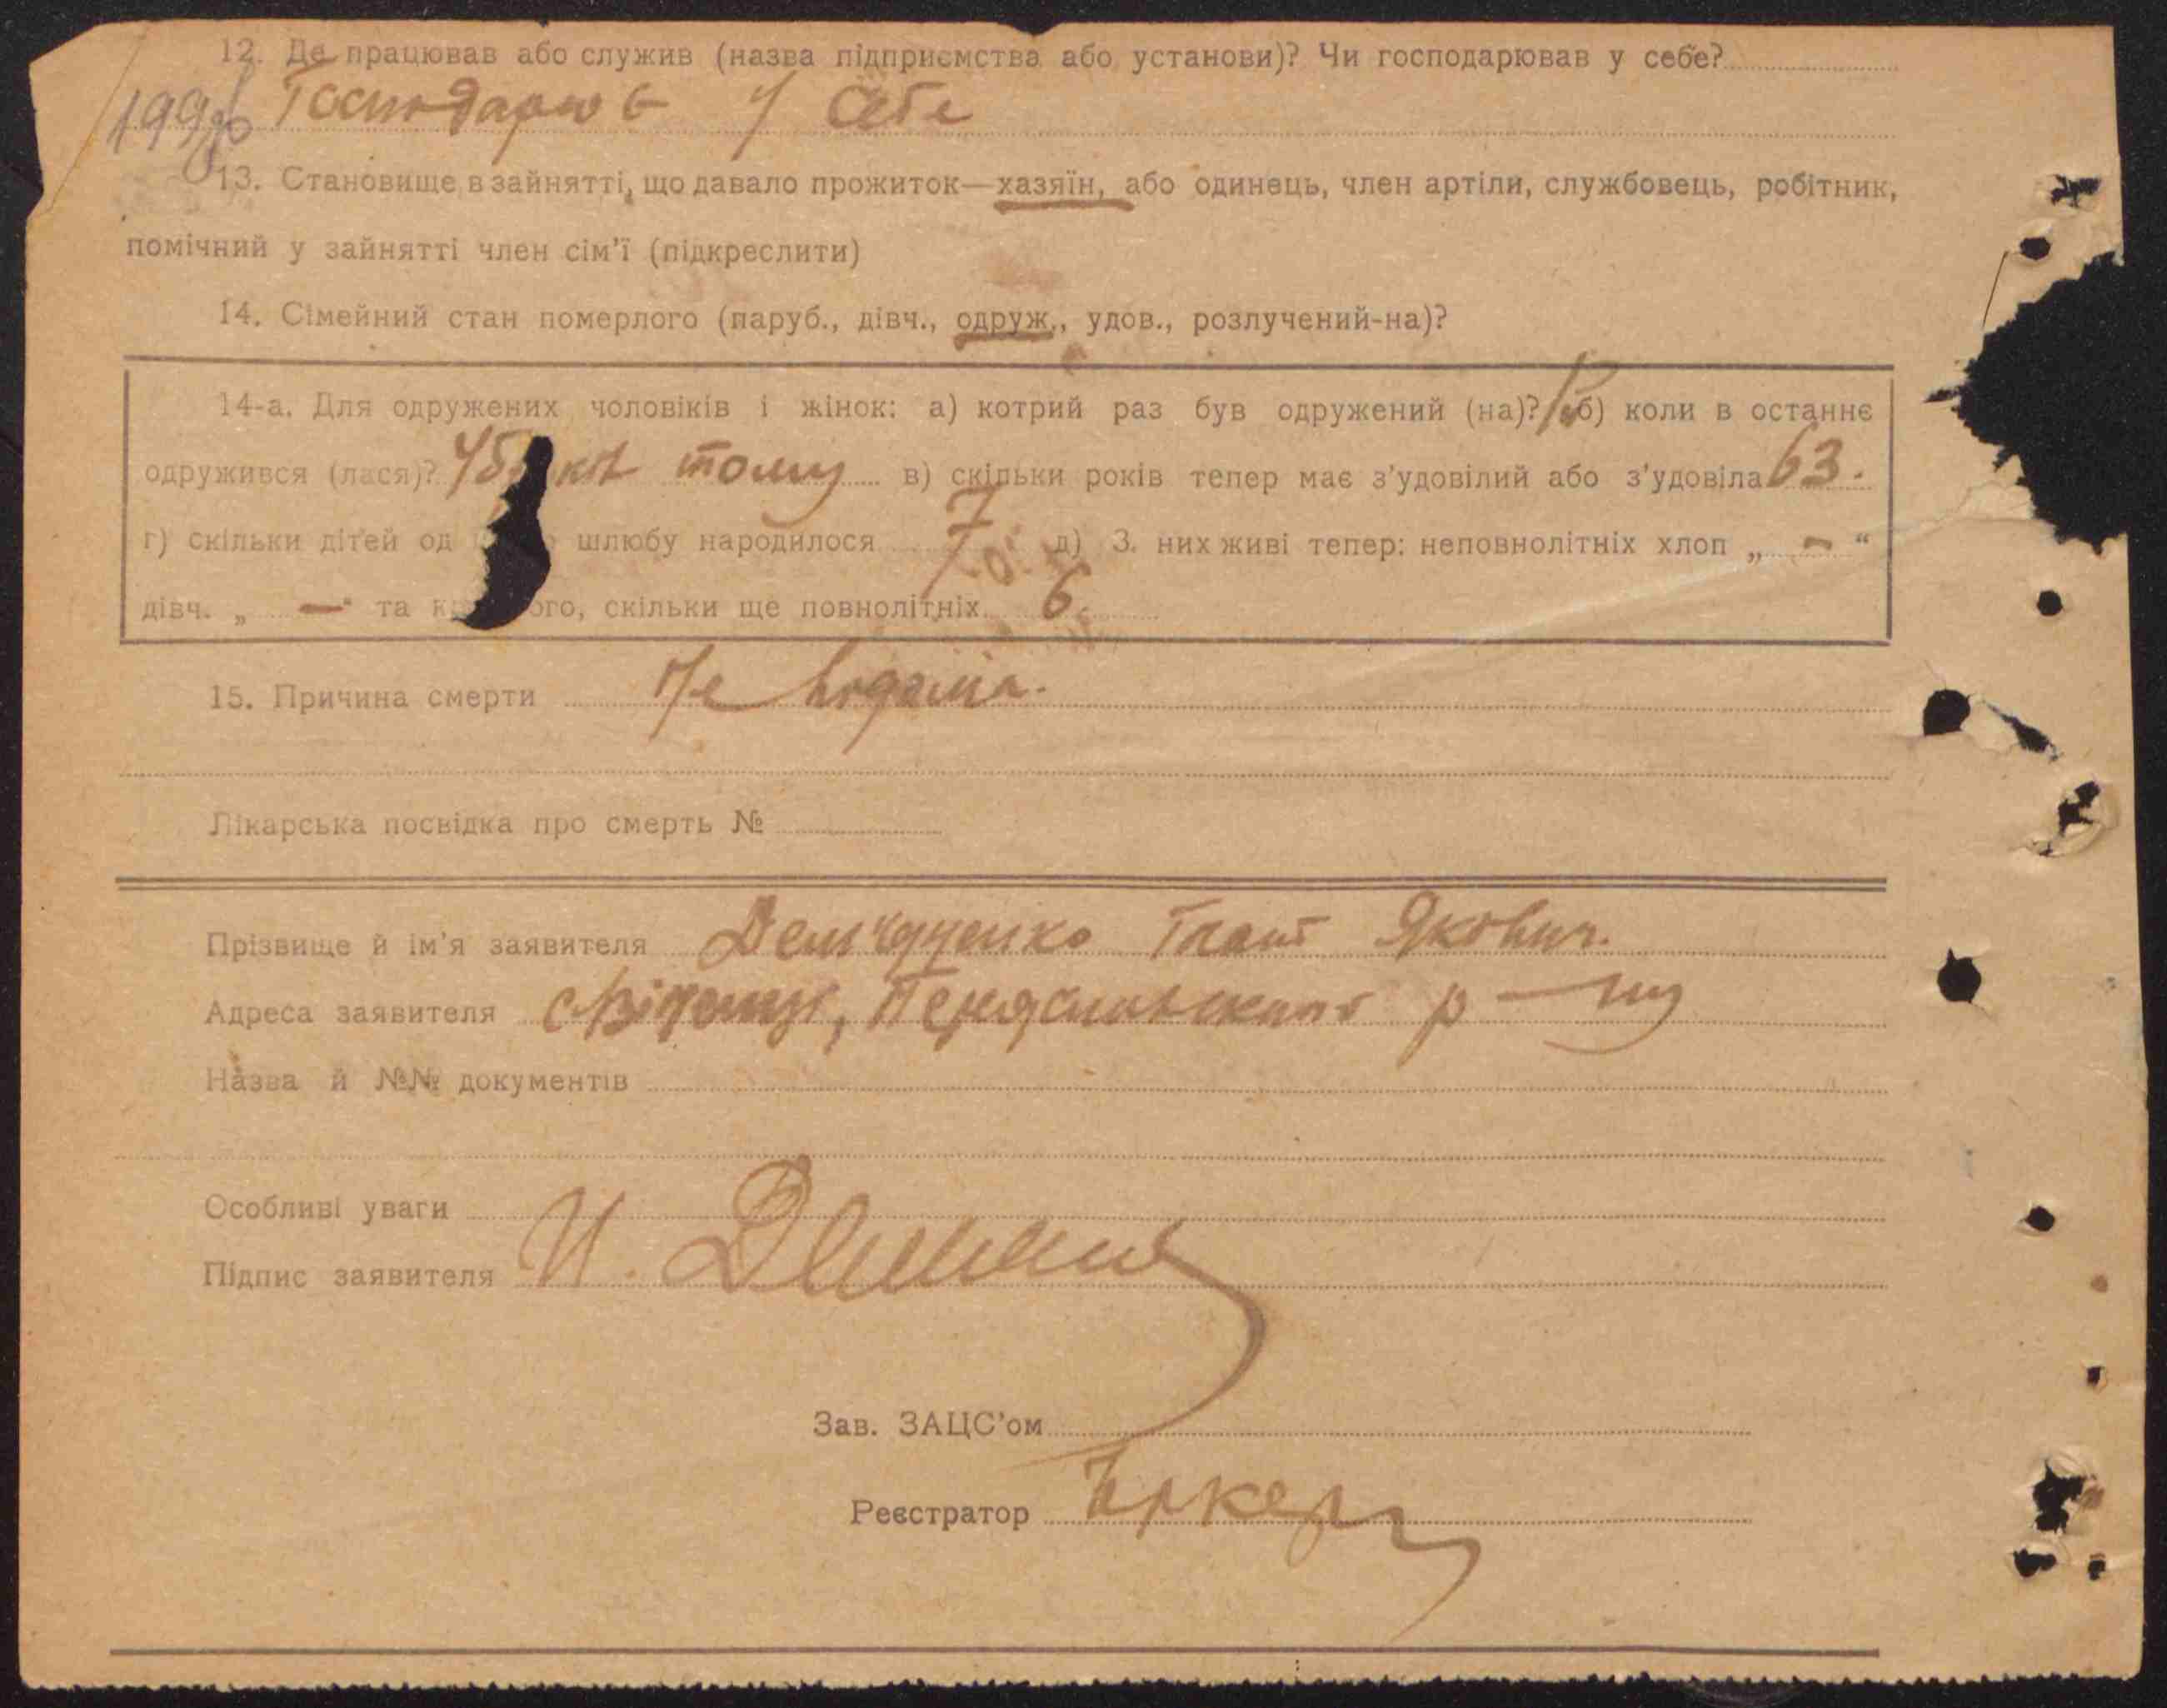 12. Де працював або служив (назва підприємства або установи)? Чи господарював у себе?
Господарював у себе
13. Становище в зайнятті, що давало прожиток—хазяїн, або одинець, член артіли, службовець, робітник,
помічний у зайнятті член сім'ї (підкреслити)
14. Сімейний стан померлого (паруб., дівч., одруж., удов., розлучений-на)?
14-а. Для одружених чоловіків і жінок: а) котрий раз був одружений (на)? б) коли в останнє
одружився (лася)? 45 тому в) скільки років тепер має з'удовілий або з'удовіла 63.
г) скільки дітей од шлюбу народилося 7 д) З них живі тепер: неповнолітніх хлоп „ — “
дівч. „ — “ та ого, скільки ще повнолітніх 6.
15. Причина смерти Не
Лікарська посвідка про смерть №
Прізвище й ім'я заявителя Якович.
Адреса заявителя р-ну
Назва й №№ документів
Особливі уваги
Підпис заявителя
Зав. ЗАЦС'ом
Реєстратор